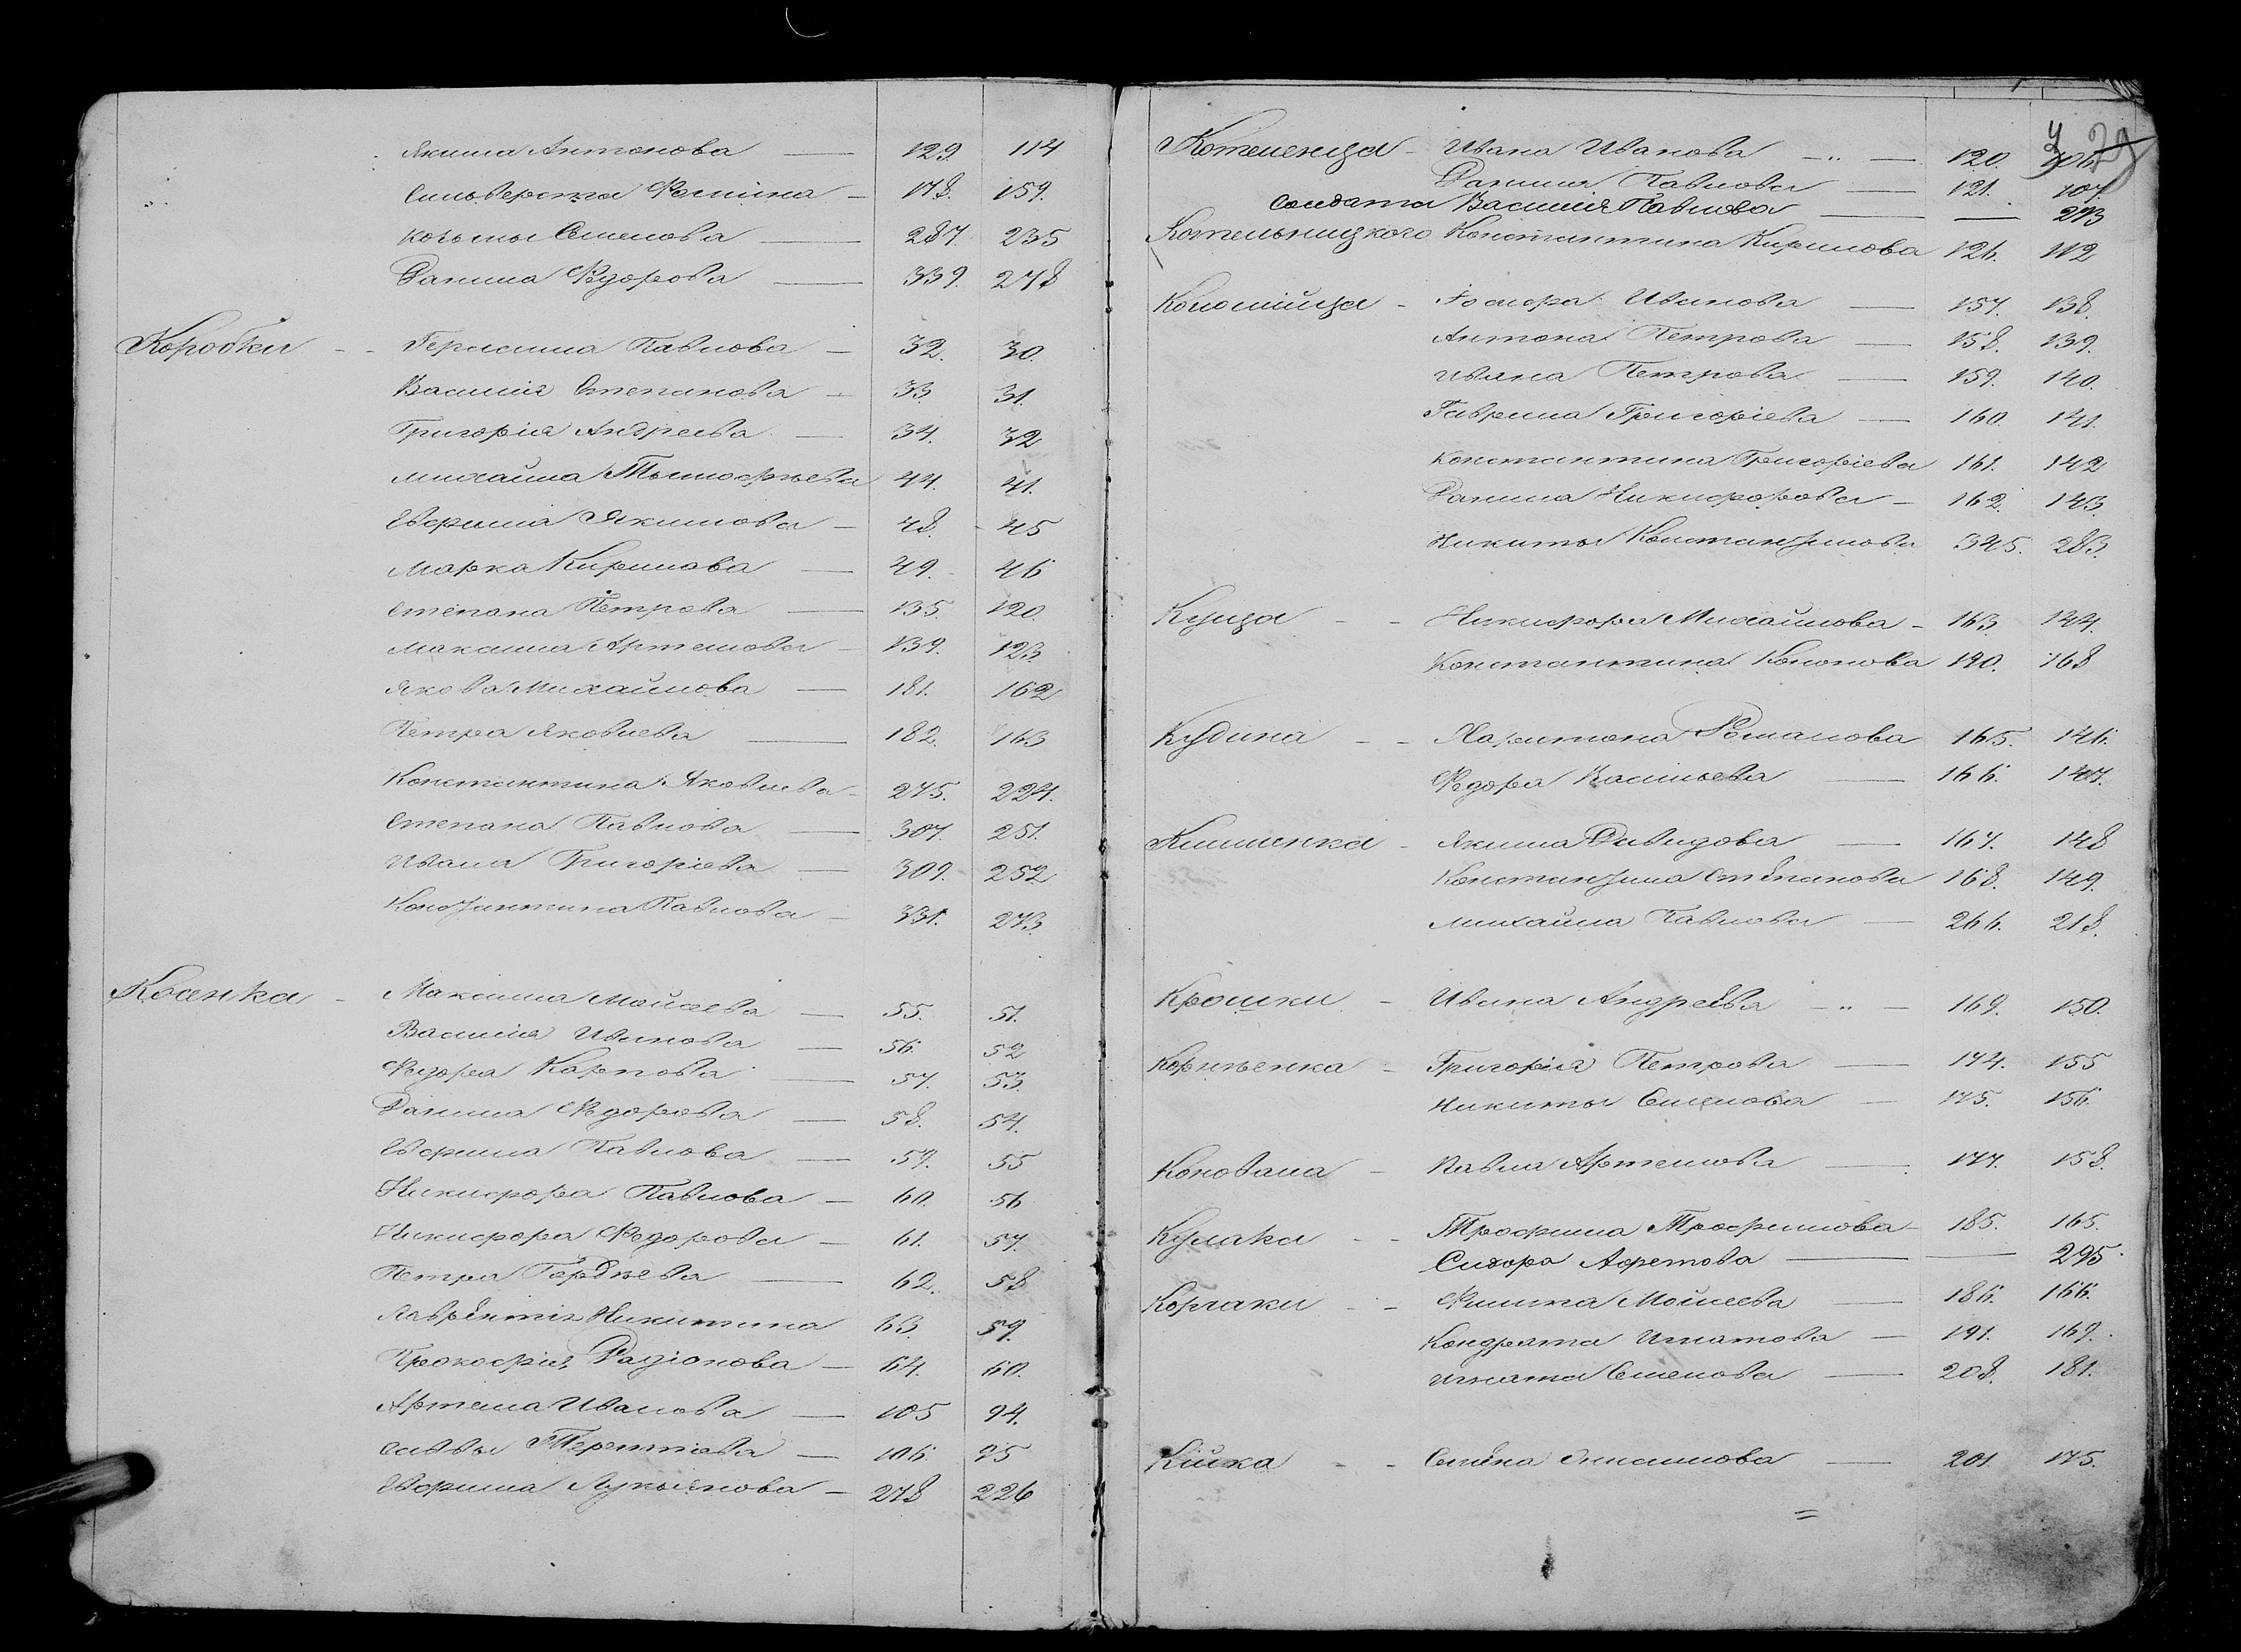 Якима Антонова — 129. 114
Сильверста Фомина — 178. 159.
Козьмы Семенова — 287. 235
Данила Федорова — 339. 278
Коробки - - Герасима Павлова — 32. 30.
Василия Степанова — 33. 31.
Григорія Андреева — 34. 32
Михайла Тымофѣева 44. 41.
Евфима Якимова — 48. 45
Марка Кирилова — 49. 46
Степана Петрова — 135. 120.
Максима Артемова — 139. 123.
Якова Михайлова — 181. 162
Петра Яковлева — 182. 163
Константина Яковлева - 275. 224.
Степана Павлова — 307. 251.
Ивана Григоріева — 309. 252
Константина Павлова — 331. 273.
Квачка - Максима Мойсеева — 55. 51.
Василия Иванова — 56. 52
Федора Карпова — 57. 53.
Данила Федорова — 58. 54.
Евфима Павлова — 59. 55
Никифора Павлова — 60. 56
Никифора Федорова — 61. 57.
Петра Гордѣева — 62. 58
Лаврентія Никитина 63. 59.
Прокофія Радіонова — 64. 60.
Артема Иванова — 105 94.
Саввы Терентіева — 106. 95
Евфима Лукьянова — 278 226
29
Котеленца - Ивана Иванова — „ — 120. 106.
Данила Павлова — 121. 107.
Солдата Василія Павлова — — 293
Котельницкого Константина Кирилова 126. 112
Коломійца - Іосифа Иванова — 157. 138.
Антона Петрова — 158. 139.
Ивана Петрова — 159. 140.
Гаврила Григоріева — 160. 141.
Константина Григоріева 161. 142
Данила Никифорова — 162. 143.
Никиты Константинова 345. 283.
Куца - - Никифора Михайлова - 163 144.
Константина Кононова 190. 168
Кудина - - Харитона Романова 165. 146.
Федора Васильева — 166. 147.
Клименка - Якима Давидова — 167. 148
Константина Степанова 168. 149.
Михайла Павлова — 266. 218.
Крошки - Ивана Андреева — „ — 169. 150.
Корнѣенка - Григорія Петрова — 174. 155
Никиты Семенова — 175. 156.
Коновала - Павла Артемова — 177. 158.
Кулака - - Трофима Трофимова 185. 165.
Сидора Афетова — — 295.
Корчаки - - Филипа Мойсеева — 186. 166.
Кондрата Игнатова — 191. 169.
Игната Семенова — 208. 181.
Кійка - - Семена — 201. 175.